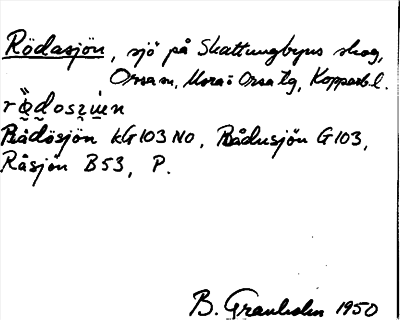 Rödasjön, sjö på Skattungbyns skog,
Orsa sn, Mora o Orsa tg, Kopparb. l.
Rådösjön kG103 NO, Rådusjön G103,
Råsjön B53, P.
B. Granholm 1950